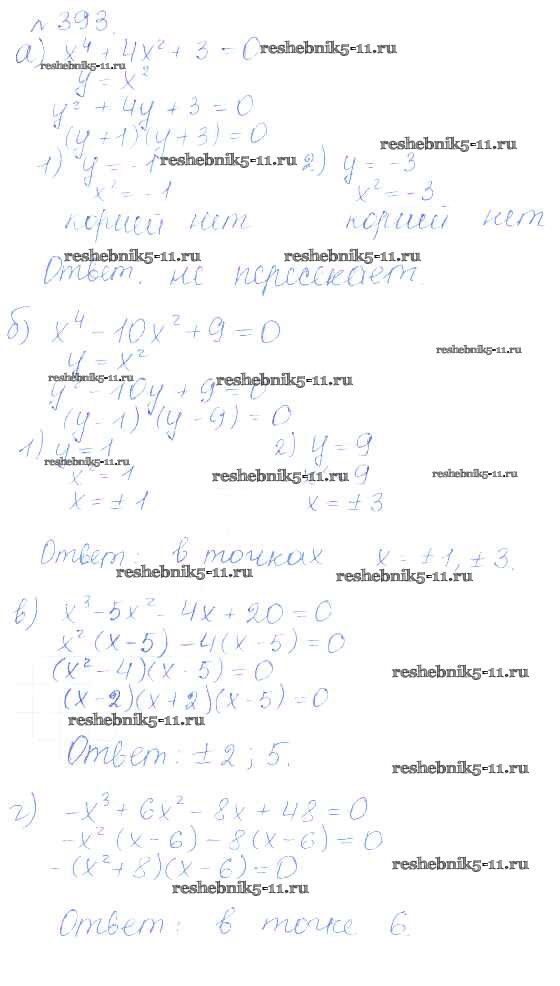 №393.
а) x⁴ + 4x² + 3 = 0 reshebnik5-11.ru
reshebnik5-11.ru
y = x²
y² + 4y + 3 = 0
(y + 1)(y + 3) = 0
reshebnik5-11.ru
1) y = -1 reshebnik5-11.ru 2) y = -3
x² = -1 x² = -3
корней нет корней нет
reshebnik5-11.ru reshebnik5-11.ru
Ответ. не пересекает.
б) x⁴ - 10x² + 9 = 0
reshebnik5-11.ru
y = x²
reshebnik5-11.ru reshebnik5-11.ru
y² - 10y + 9 = 0
(y - 1) (y - 9) = 0
1) y = 1 2) y = 9
reshebnik5-11.ru
x² = 1 reshebnik5-11.ru 9 reshebnik5-11.ru
x = ± 1 x = ± 3
Ответ: в точках x = ± 1, ± 3.
reshebnik5-11.ru reshebnik5-11.ru
в) x³ - 5x² - 4x + 20 = 0
x² (x - 5) - 4(x - 5) = 0
(x² - 4)(x - 5) = 0 reshebnik5-11.ru
(x - 2)(x + 2)(x - 5) = 0
reshebnik5-11.ru
Ответ: ± 2 ; 5.
reshebnik5-11.ru
г) -x³ + 6x² - 8x + 48 = 0
-x² (x - 6) - 8(x - 6) = 0
-(x² + 8)(x - 6) = 0 reshebnik5-11.ru
reshebnik5-11.ru
Ответ: в точке 6.